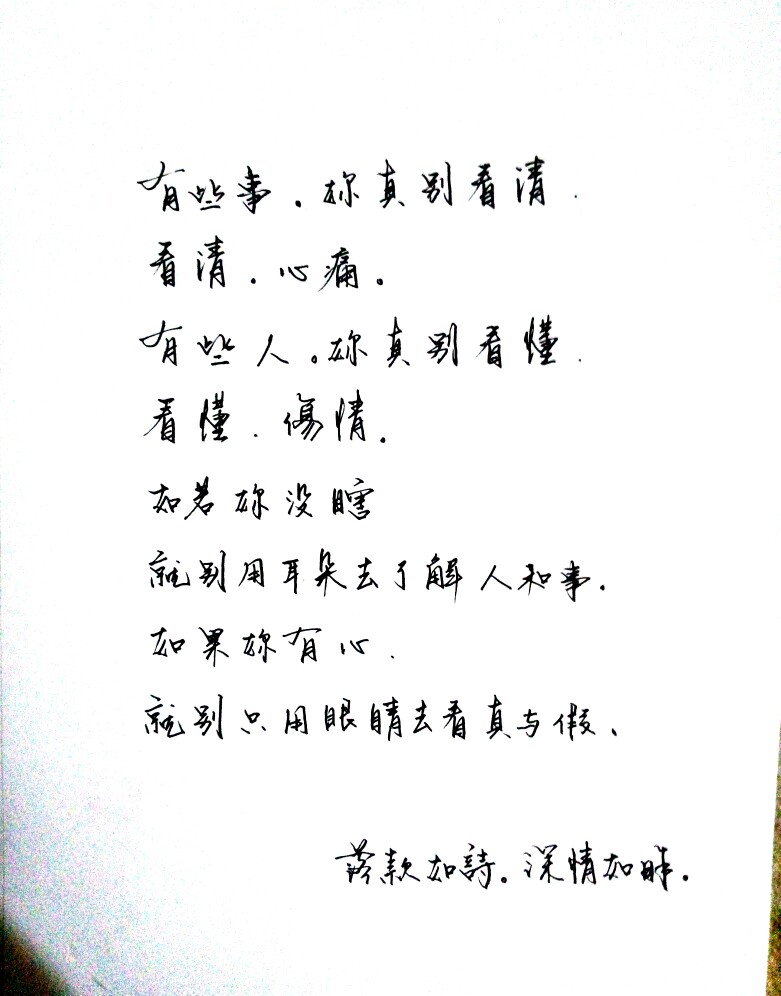 有些事。妳真别看清.
看清.心痛。
有些人。妳真别看懂.
看懂.傷情.
如若妳没瞎
就别用耳朵去了解人和事.
如果妳有心.
就别只用眼睛去看真与假、
落款如詩。深情如眸.